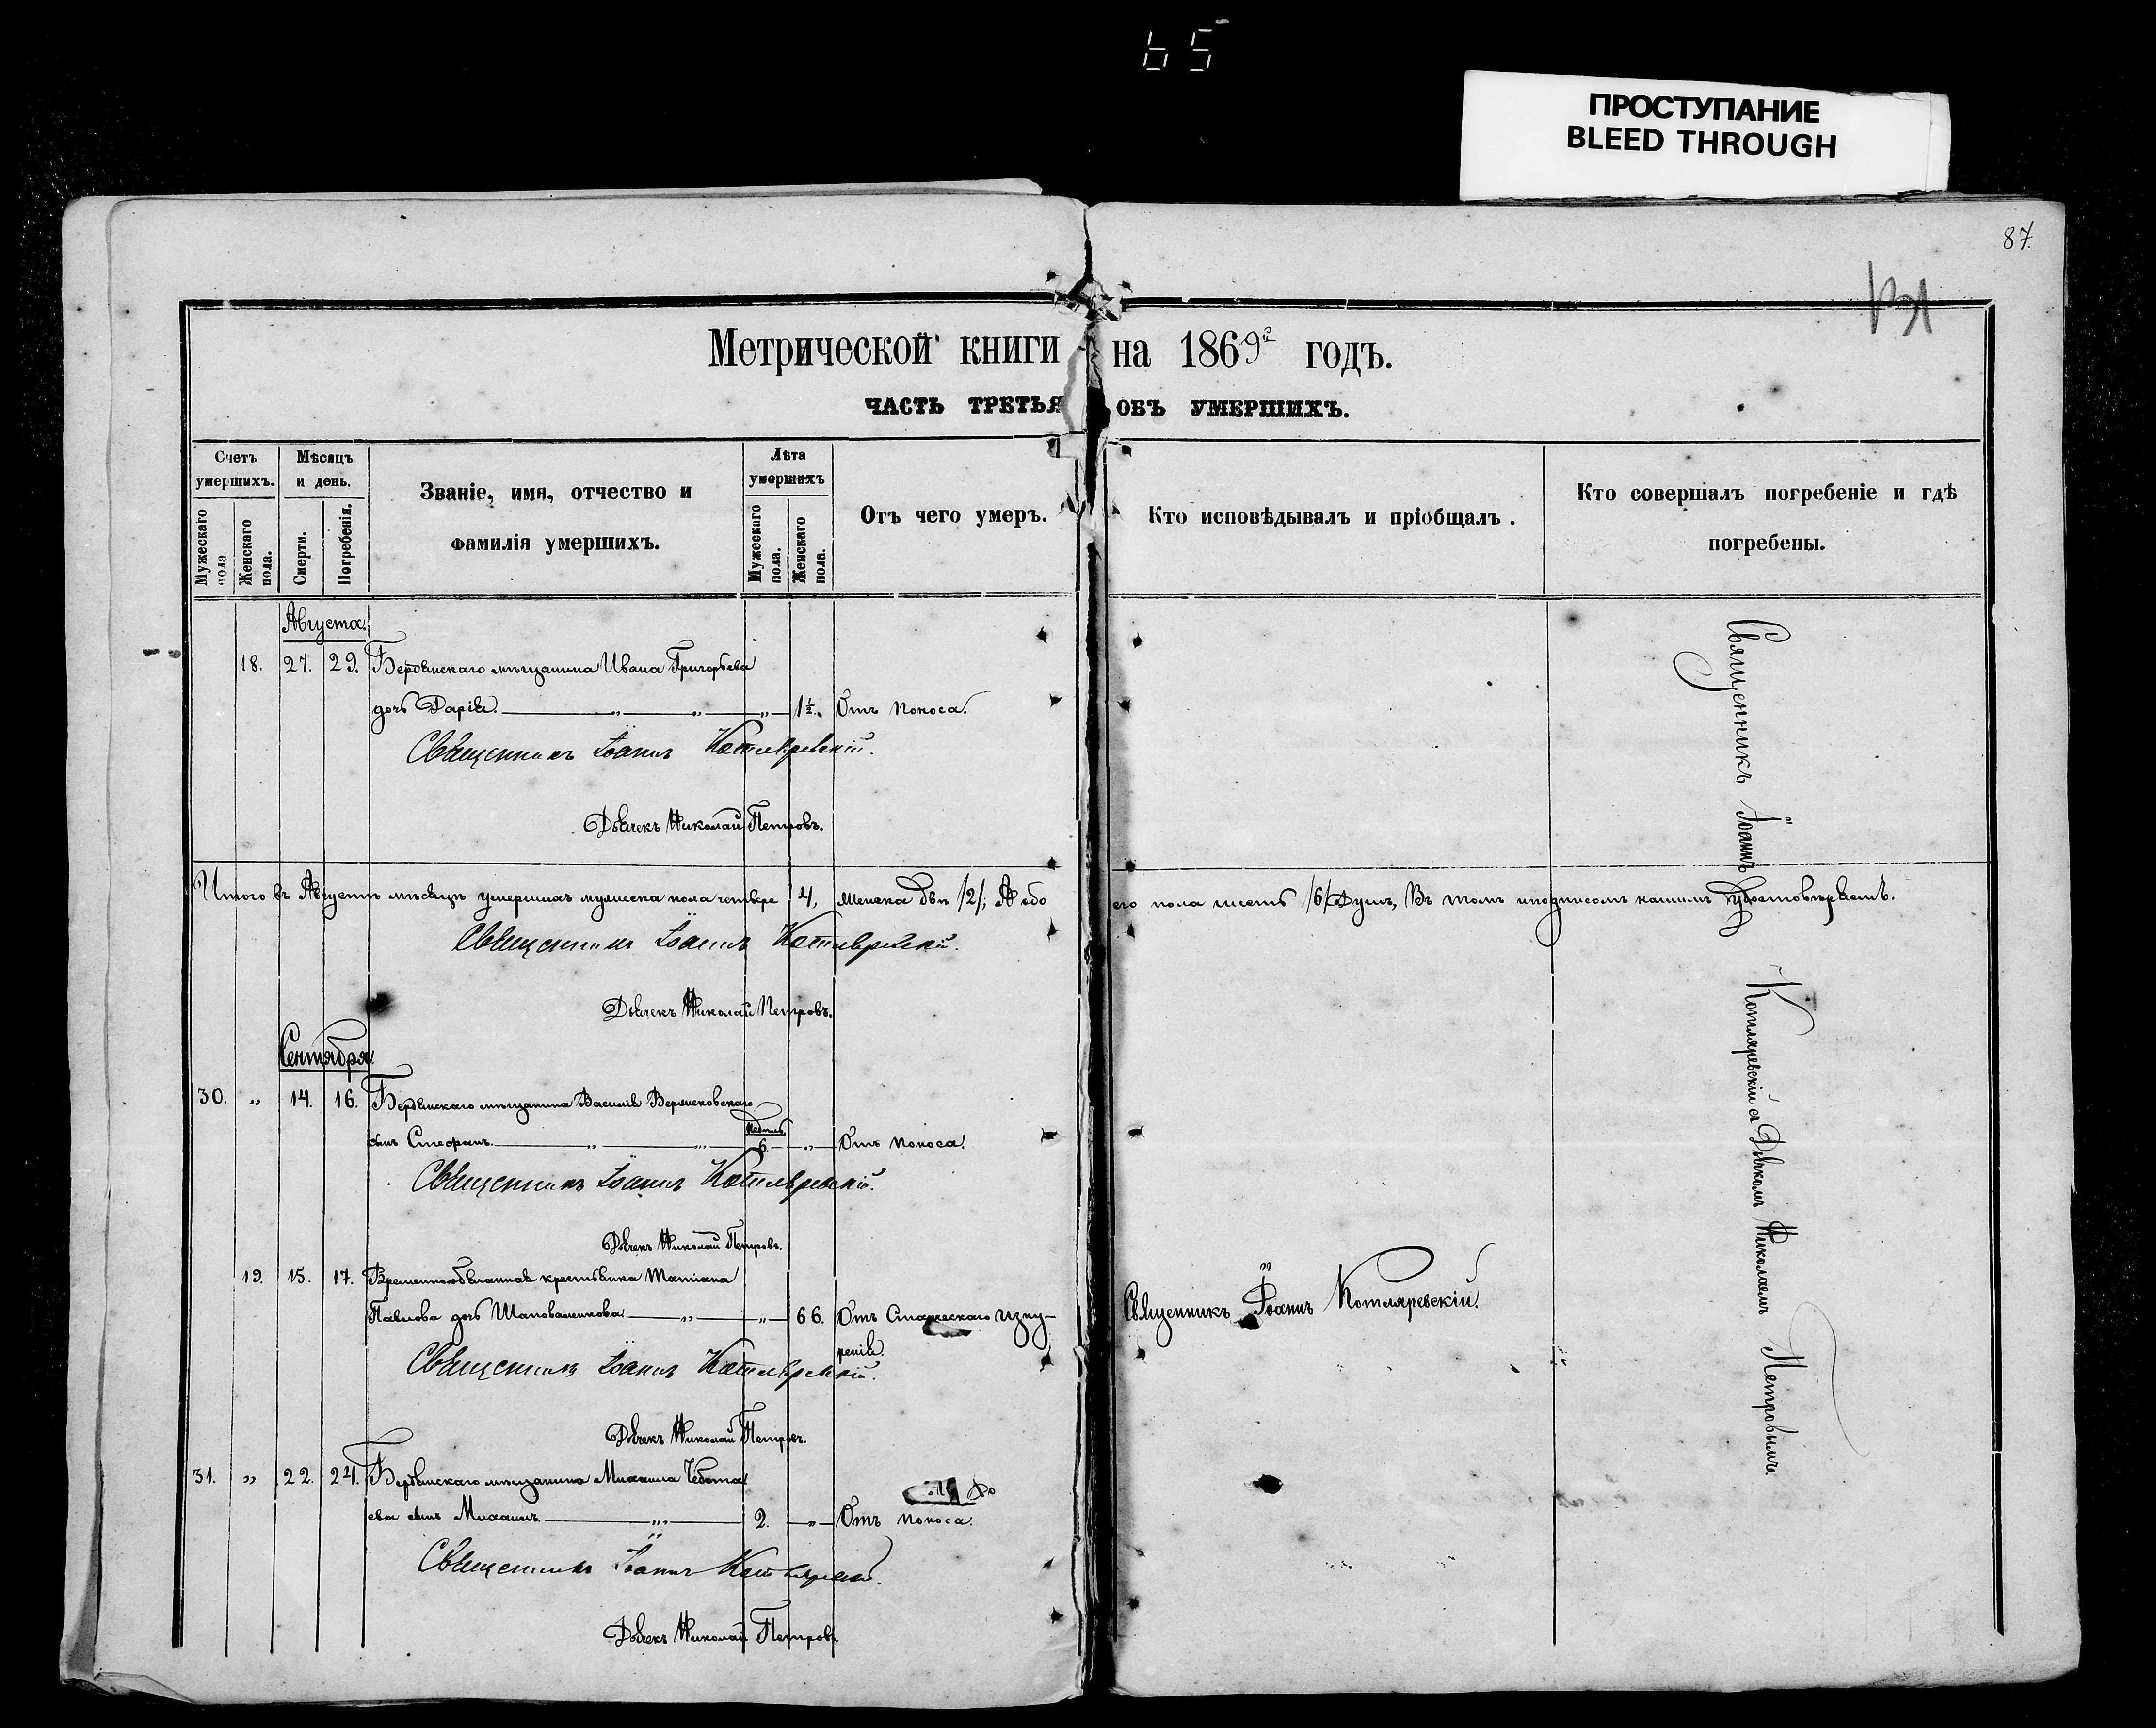 65
ПРОСТУПАНИЕ
BLEED THROUGH
87.
Метрической книги на 1869й годъ.
ЧАСТЬ ТРЕТЬЯ ОБЪ УМЕРШИХЪ.
Счетъ умершихъ.
Мужескаго пола.
Женскаго пола.
Мѣсяцъ и день.
Смерти.
Погребенія.
Званіе, имя, отчество и
фамилія умершихъ.
Лѣта умершихъ
Мужескаго пола.
Женскаго пола.
Отъ чего умеръ.
Кто исповѣдывалъ и пріобщалъ.
Кто совершалъ погребеніе и гдѣ
погребены.
Августа.
18. 27. 29. Бердянскаго мѣщанина Ивана Григорьева
дочь Дарія. „ „ „ 1½. Отъ поноса.
Священникъ Іоаннъ Котляревскій.
Дьячекъ Николай Петровъ.
Итого въ Августѣ мѣсяцѣ умершихъ мужеска пола четыре /4/, женска двѣ /2/; А обо
его пола шесть /6/ душъ, Въ томъ подписомъ нашимъ удостовѣряемъ.
Священникъ Іоаннъ Котляревскій.
Дьячекъ Николай Петровъ.
Сентября.
30. „ 14. 16. Бердянскаго мѣщанина Василія
сынъ Стефанъ. „ „ Недѣль 6. „ Отъ поноса.
Священникъ Іоаннъ Котляревскій.
Дьячекъ Николай Петровъ.
19. 15. 17. Временнообязанная крестьянка Татіана
Павлова дочь Шаповаленкова „ „ 66. Отъ Старческаго изну-
ренія.
Священникъ Іоаннъ Котляревскій.
Священникъ Іоаннъ Котляревскій.
Дьячекъ Николай Петровъ.
31. „ 22. 24. Бердянскаго мѣщанина Михаила Чебота
ева сынъ Михаилъ. „ 2. „ Отъ поноса.
Священникъ Іоаннъ Котляревскій.
Дьячекъ Николай Петровъ.
Священникъ Іоаннъ Котляревскій съ Дьячкомъ Николаемъ Петровымъ.